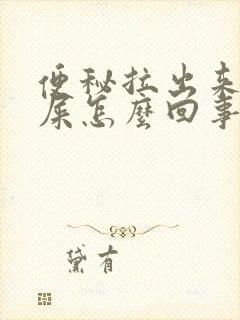 便秘拉出来
屎怎麼回事
黛有